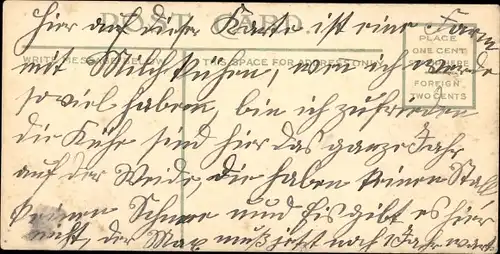 POST CARD
Hier auf dieser Karte ist eine Farm
PLACE
ONE CENT
WRITE MESSAGE BELOW THIS SPACE FOR ADDRESS ONLY HERE
mit Milchkühen, wen ich werde
FOREIGN
TWO CENTS
soviel haben, bin ich zufrieden
die Kühe sind hier das ganze Jahr
auf der Weide, die haben keinen Stall
keinen Schnee und Eis gibt es hier
nicht, der Max muß jetzt noch 1 Jahr wart